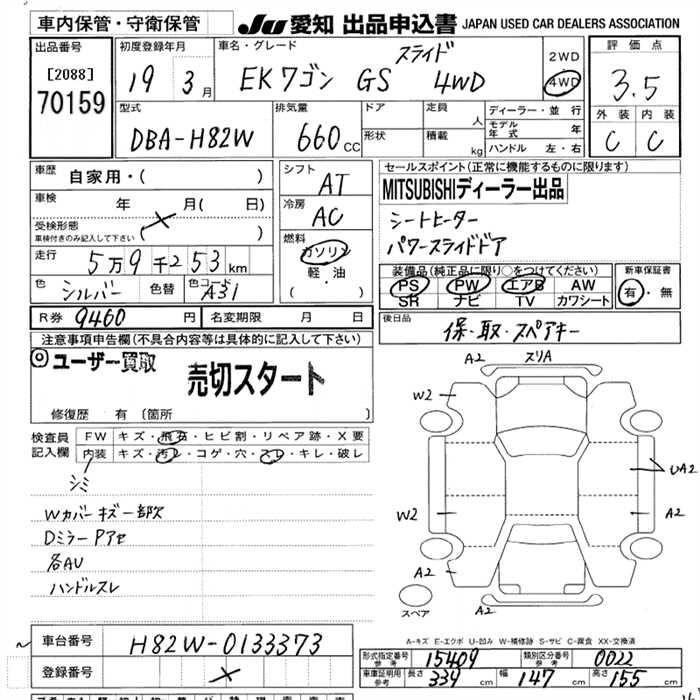 車内保管・守衛保管
JU 愛知 出品申込書 JAPAN USED CAR DEALERS ASSOCIATION
出品番号
[2088]
70159
初度登録年月
19 3月
車名・グレード
スライド
EKワゴン GS 4WD
2WD
4WD
評価点
3.5
外装 内装
C C
型式
DBA-H82W
排気量
660cc
ドア
形状
定員 人
積載 kg
ディーラー・並行
モデル年式 年
ハンドル 左・右
車歴 自家用・( )
車検 年 月( 日)
受検形態
車検付きのみ記入して下さい ( )
走行 5万9千253km
色 シルバー 色替 色コード A31
シフト AT
冷房 AC
燃料
ガソリン
軽・油
( )
セールスポイント(正常に機能するものに限ります)
MITSUBISHIディーラー出品
シートヒーター
パワースライドドア
装備品(純正品に限り○をつけてください) 新車保証書
PS PW エアB AW
SR ナビ TV カワシート
有・無
R券 9460円 名変期限 月 日
後日品 保・取・スペアキー
注意事項申告欄(不具合内容等は具体的に記入して下さい)
◎ユーザー買取
売切スタート
修復歴 有 〔箇所 〕
検査員記入欄
FW キズ・飛石・ヒビ割・リペア跡・X要
内装 キズ・汚レ・コゲ・穴・スレ・キレ・破レ
シミ
Wカバーキズ一部欠
DミラーPアセ
各AU
ハンドルスレ
A2 スリA
W2
UA2
W2 A2
A2
A2
スペア
A-キズ E-エクボ U-凹み W-補修跡 S-サビ C-腐食 XX-交換済
車台番号 H82W-0133373
登録番号
形式指定番号 参考 15409 類別区分番号 参考 0022
車庫証明用 参考 長さ 339cm 幅 147cm 高さ 155cm